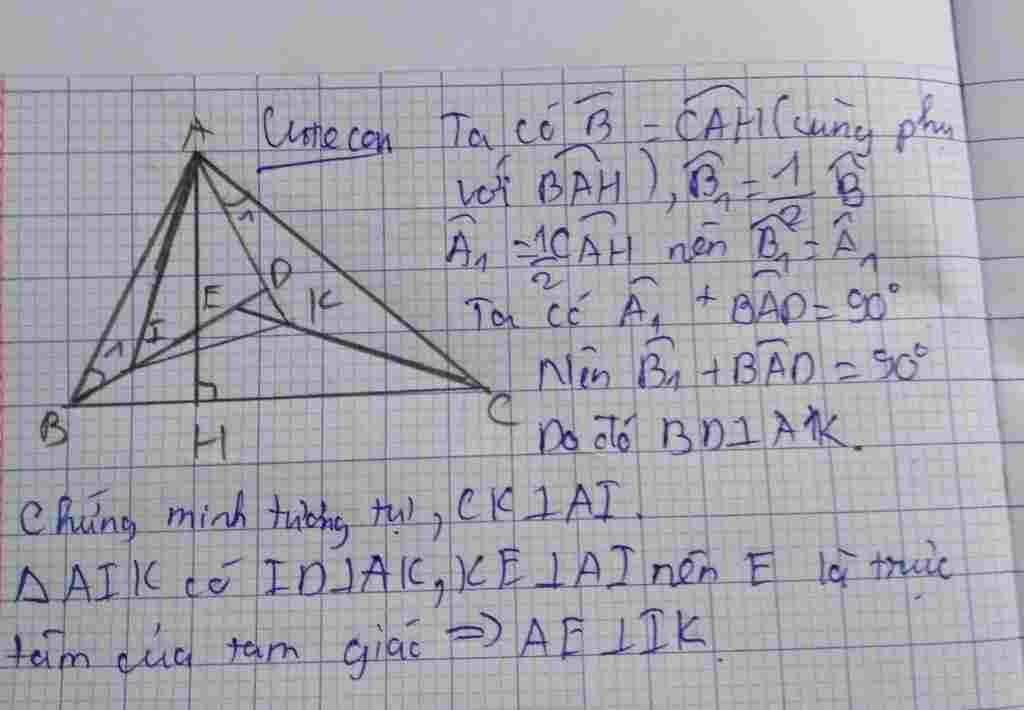 A
Cutecon Ta có B̂ = CAH (cùng phụ
với BAH), B̂₁ = 1/2 B̂
Â₁ = 1/2 CAH nên B̂₁ = Â₁
Ta có Â₁ + BAD = 90°
Nên B̂₁ + BAD = 90°
Do đó BD ⊥ AK.
1
D
E K
I
1
B H C
Chứng minh tương tự, CK ⊥ AI.
Δ AIK có ID ⊥ AK, KE ⊥ AI nên E là trực
tâm của tam giác => AE ⊥ IK.